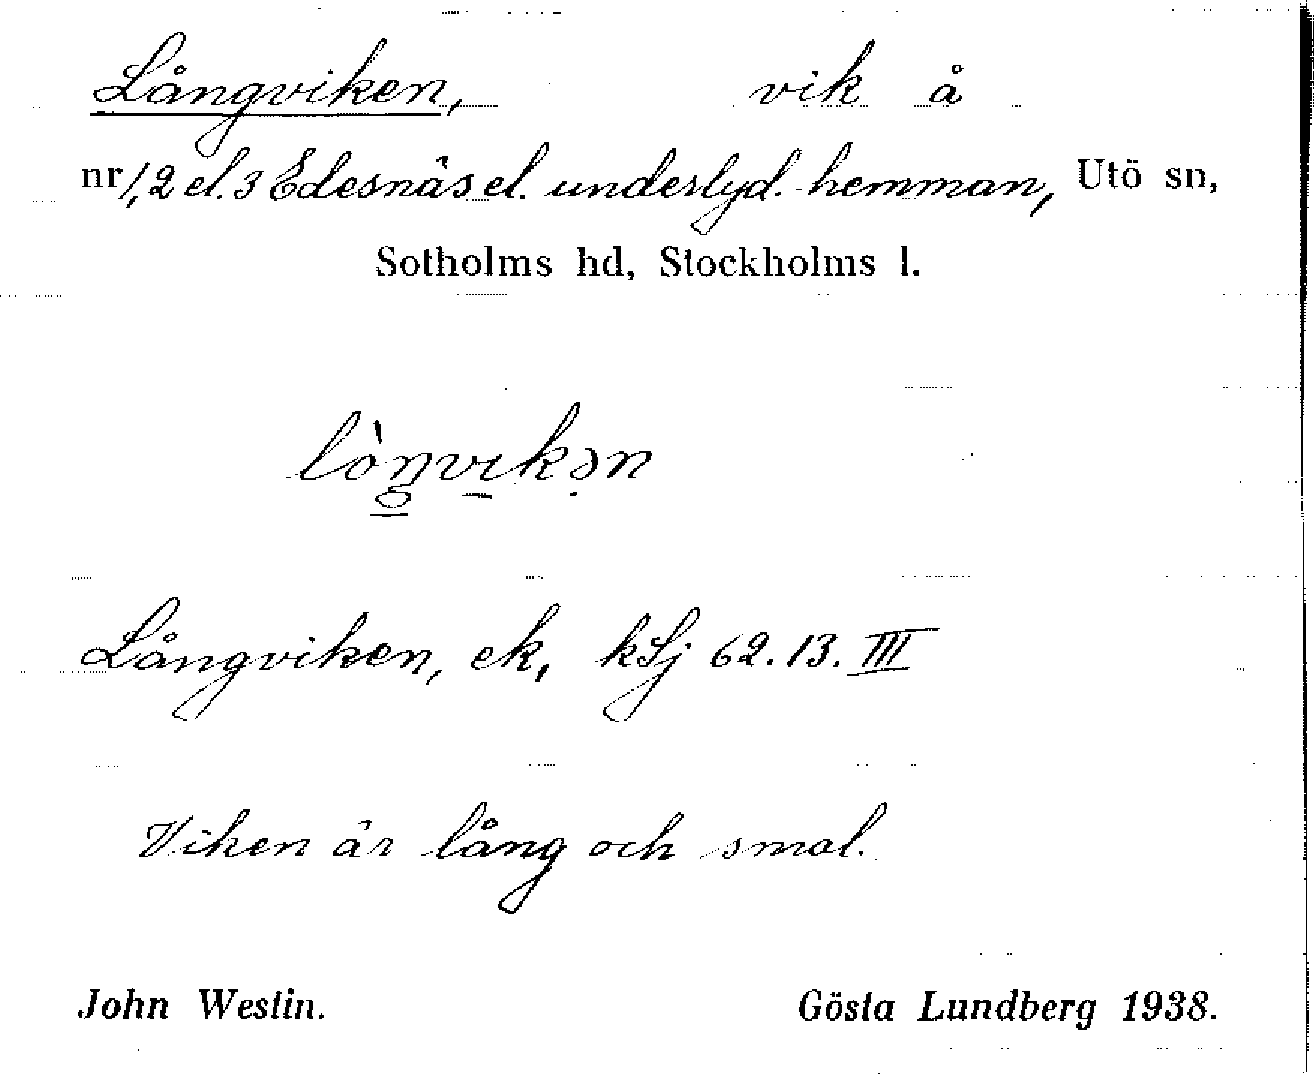 Långviken, vik å
nr 1, 2 el. 3 Edesnäs el. underlyd. hemman, Utö sn,
Sotholms hd, Stockholms l.
lòŋvıkən
Långviken, ek, kSj 62.13.III
Viken är lång och smal.
John Westin. Gösta Lundberg 1938.